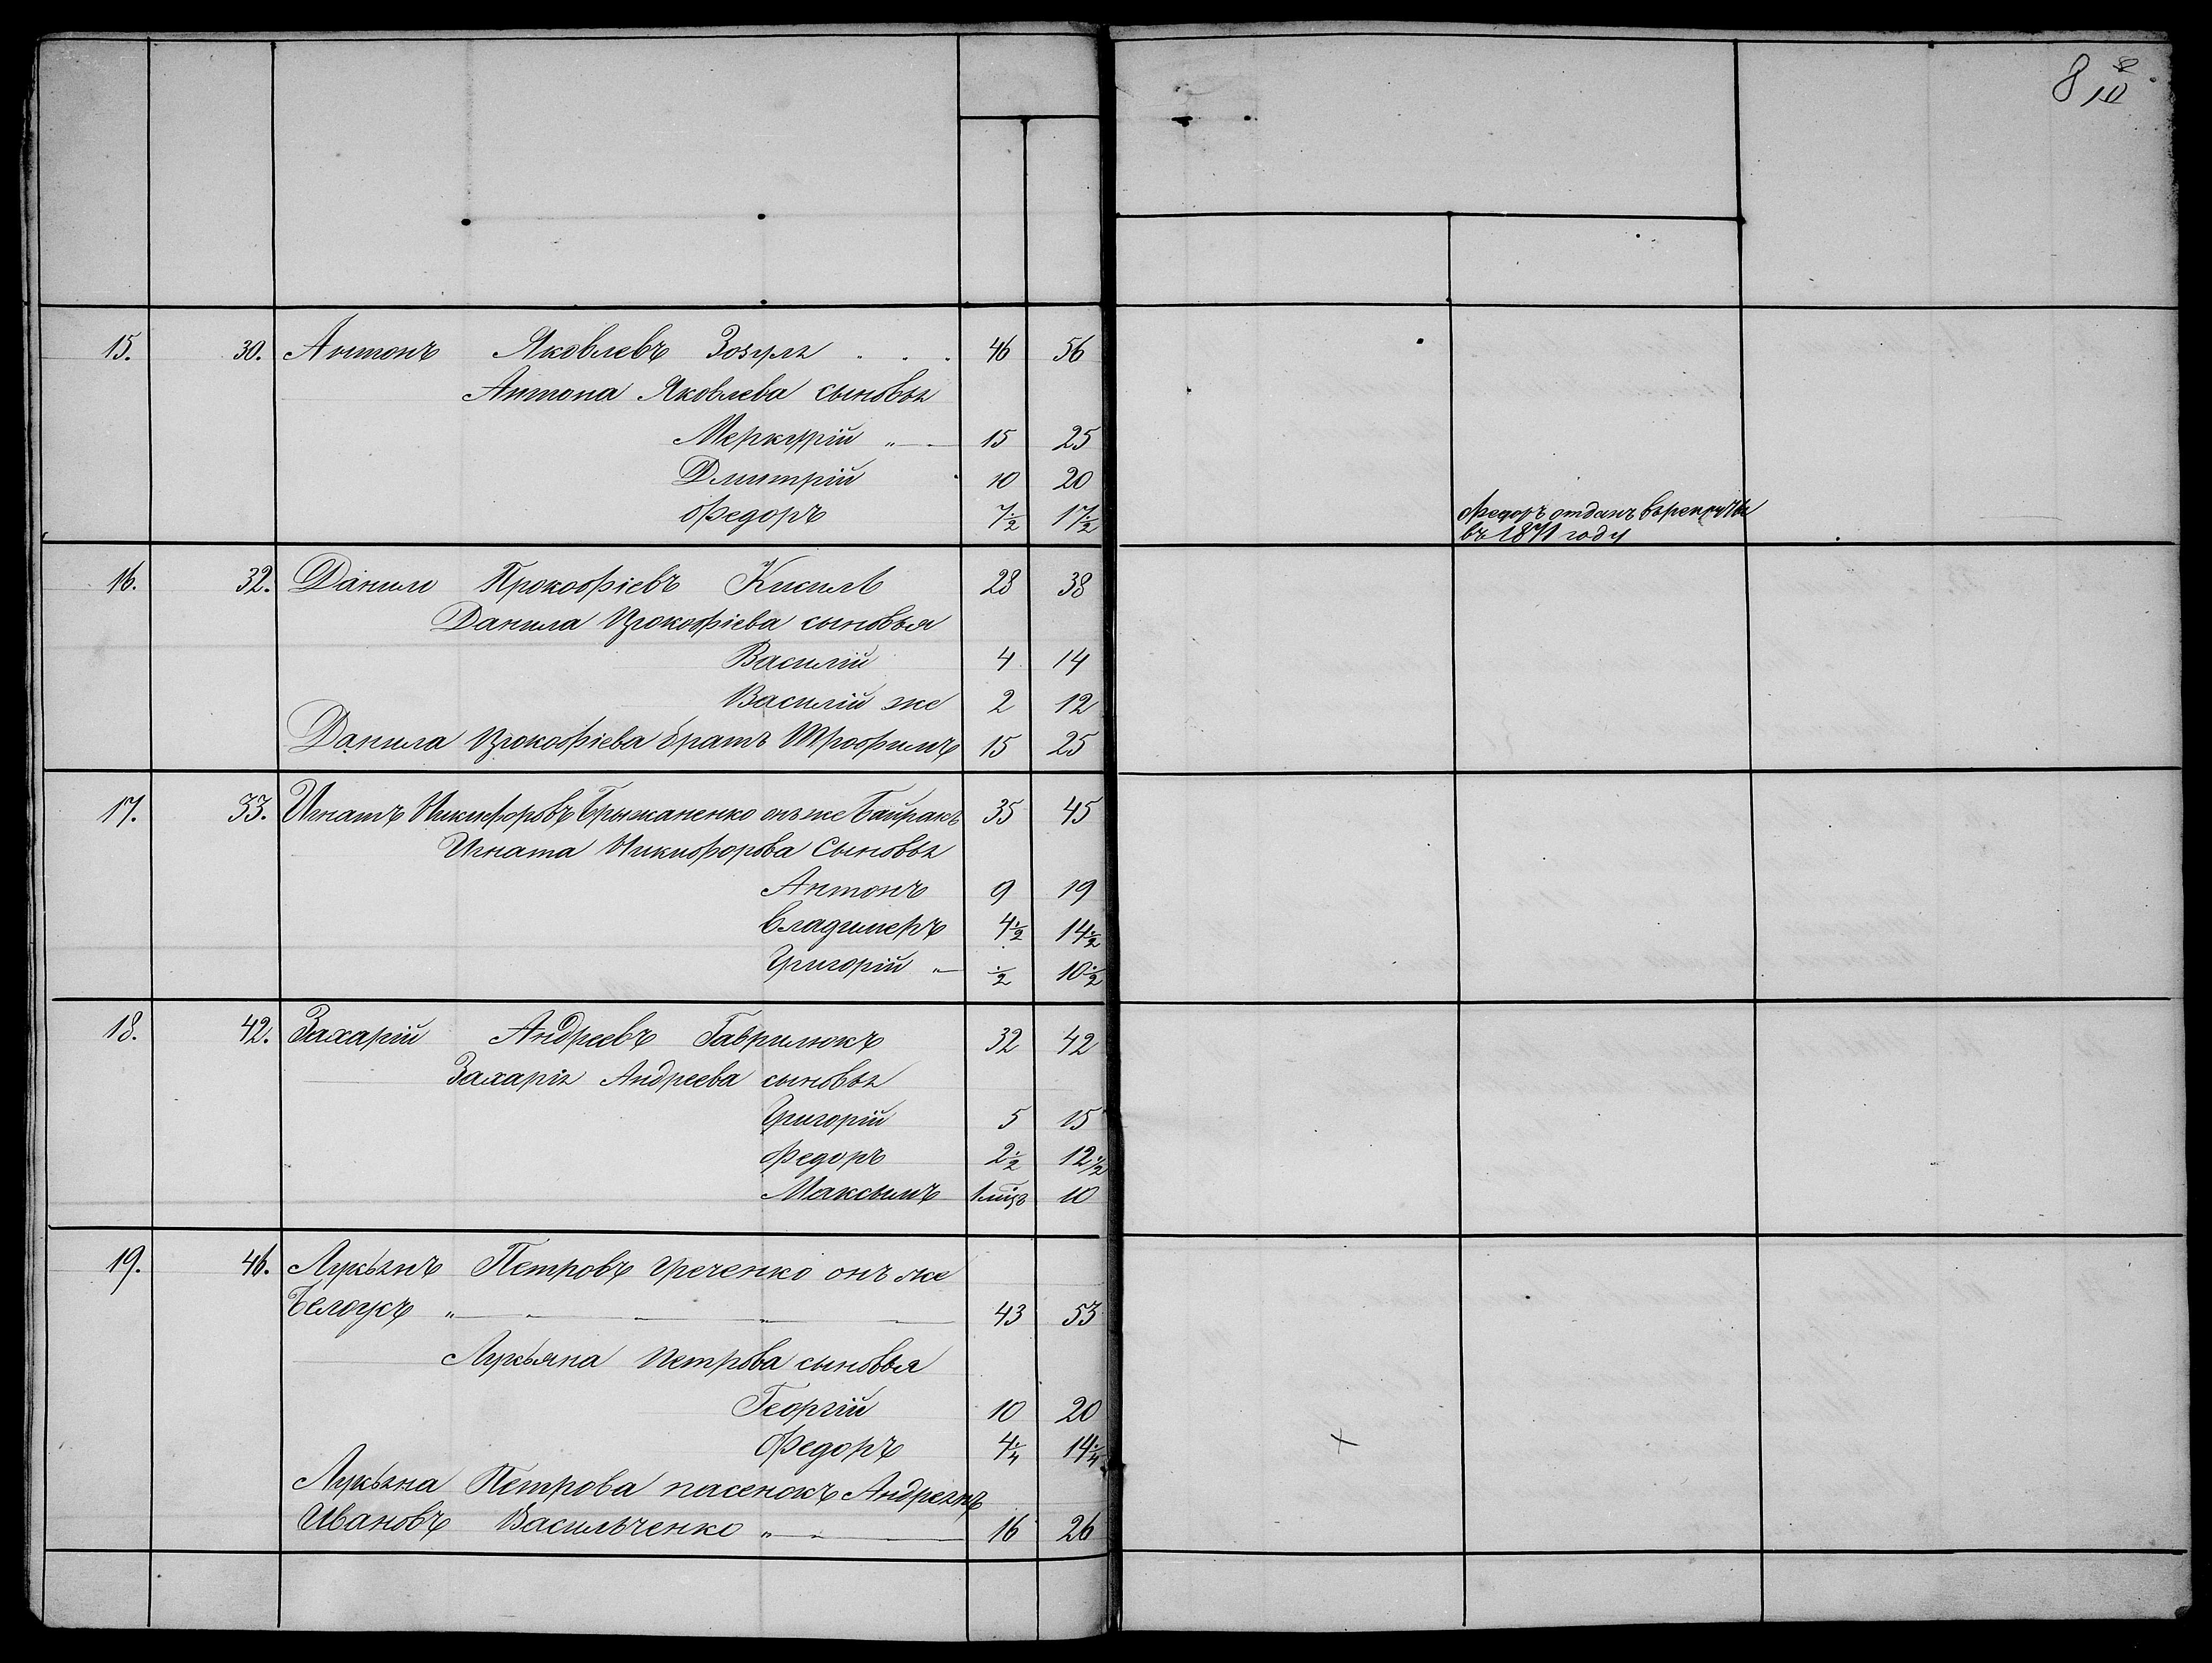 8 8
10
15. 30. Антонъ Яковлевъ Зозуля . . . 46 56
Антона Яковлева сыновья
Меркурій „ — 15 25
Дмитрій 10 20
Федоръ 7 1/2 17 1/2
Федоръ отданъ въ рекруты
въ 1871 году
16. 32. Данило Прокофіевъ Кисиль 28 38
Данила Прокофіева сыновья
Василій 4 14
Василій же 2 12
Данила Прокофіева братъ Трофимъ 15 25
17. 33. Игнатъ Никифоровъ Брыжаненко онъ же Байракъ 35 45
Игната Никифорова Сыновья
Антонъ 9 19
Владимеръ 4 1/2 14 1/2
Григорій „ — 1/2 10 1/2
18. 42. Захарій Андреевъ Гаврилюкъ 32 42
Захарія Андреева сыновья
Григорій 5 15
Федоръ 2 1/2 12 1/2
Максымъ 1 міць 10
19. 46. Лукьянъ Петровъ Греченко онъ же
Белоусъ „ — „ — „ — „ — 43 53
Лукьяна Петрова сыновья
Георгій 10 20
Федоръ 4 1/4 14 1/4
Лукьяна Петрова пасенокъ Андреянъ
Ивановъ Васильченко „ — „ — 16 26